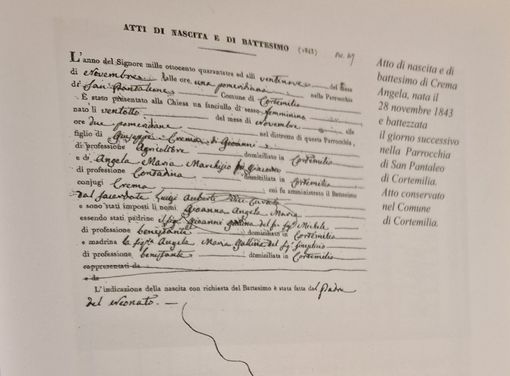 ATTI DI NASCITA E DI BATTESIMO (1843) No. 49
L'anno del Signore mille ottocento quarantatre ed alli ventinove del mese
di Novembre alle ore una pomeridiana nella Parrocchia
di San Pantaleone Comune di Cortemilia
È stato presentato alla Chiesa un fanciullo di sesso femminino
nato li ventotto del mese di Novembre alle
ore due pomeridiane nel distretto di questa Parrocchia,
figlio di Giuseppe Crema di Giovanni
di professione Agricoltore domiciliato in Cortemilia
e di Angela Maria Marchisio fu Giacomo
di professione Contadina domiciliata in Cortemilia
conjugi Crema cui fu amministrato il Battesimo
dal Sacerdote Luigi Auberti Vice Curato
e sono stati imposti li nomi Giovanna Angela Maria
essendo stati padrino il Sigr Giovanni Gallina del fu Michele
di professione benestante domiciliato in Cortemilia
e madrina la Angela Maria Gallina del
di professione benestante domiciliata in Cortemilia
rappresentati da
e da
L'indicazione della nascita con richiesta del Battesimo è stata fatta dal Padre
del Neonato. —
Atto di nascita e di
battesimo di Crema
Angela, nata il
28 novembre 1843
e battezzata
il giorno successivo
nella Parrocchia
di San Pantaleo
di Cortemilia.
Atto conservato
nel Comune
di Cortemilia.